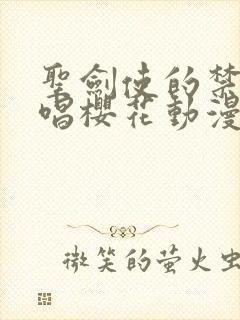 聖劍使的禁
唱櫻花動漫
微笑的萤火虫